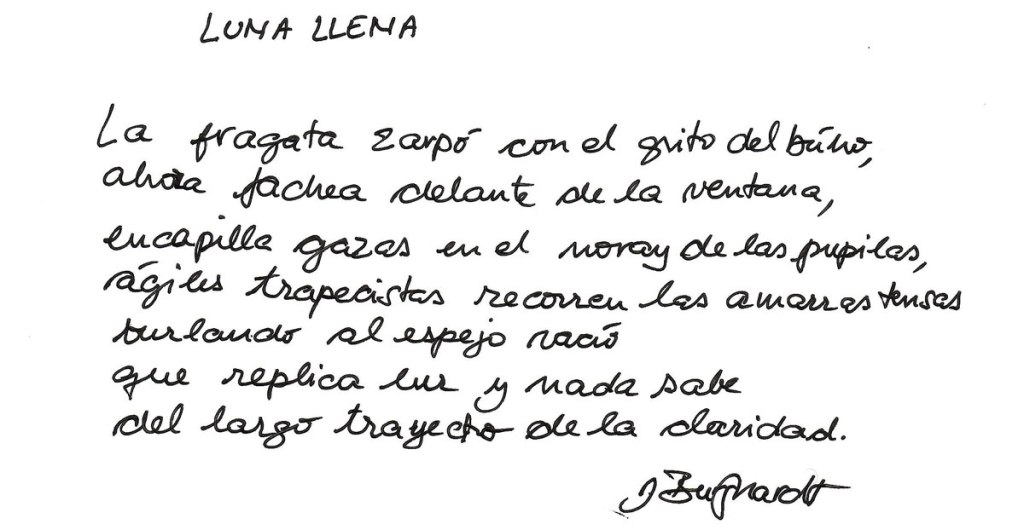 LUNA LLENA
La fragata zarpó con el grito del búho,
ahora fachea delante de la ventana,
encapilla gazas en el noray de las pupilas,
ágiles trapecistas recorren las amarras tensas
burlando al espejo vacío
que replica luz y nada sabe
del largo trayecto de la claridad.
J Burghardt